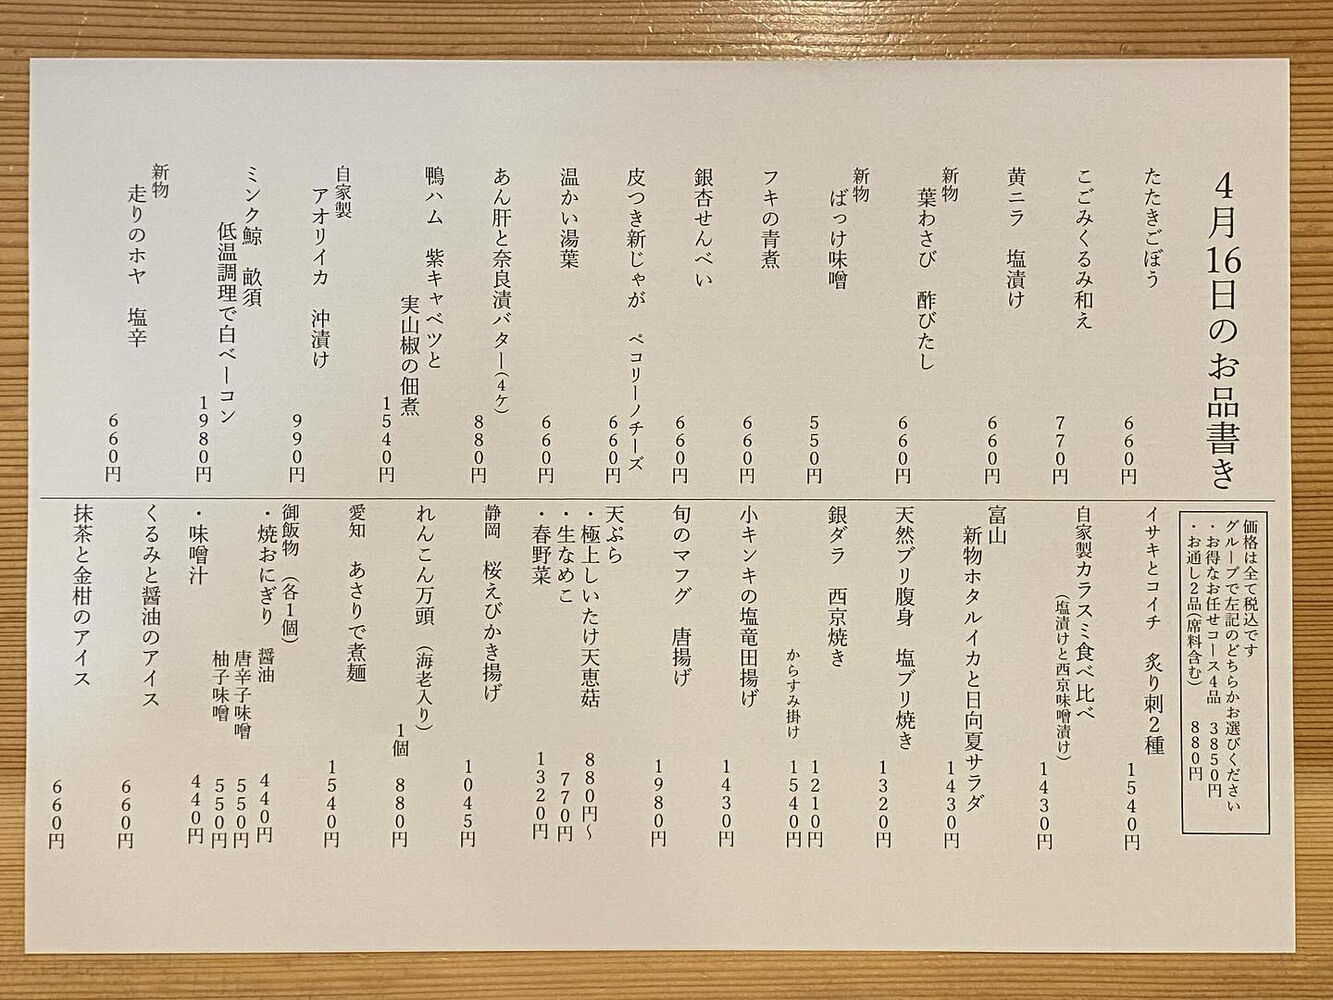 4月16日のお品書き
たたきごぼう
660円
こごみくるみ和え
770円
黄ニラ 塩漬け
660円
新物
葉わさび 酢びたし
660円
新物
ばっけ味噌
550円
フキの青煮
660円
銀杏せんべい
660円
皮つき新じゃが ペコリーノチーズ
660円
温かい湯葉
660円
あん肝と奈良漬バター(4ケ)
880円
鴨ハム 紫キャベツと
実山椒の佃煮
1540円
自家製
アオリイカ 沖漬け
990円
ミンク鯨 畝須
低温調理で白ベーコン
1980円
新物
走りのホヤ 塩辛
660円
価格は全て税込です
グループで左記のどちらかお選びください
・お得なお任せコース4品 3850円
・お通し2品(席料含む) 880円
イサキとコイチ 炙り刺2種
1540円
自家製カラスミ食べ比べ
(塩漬けと西京味噌漬け)
1430円
富山
新物ホタルイカと日向夏サラダ
1430円
天然ブリ腹身 塩ブリ焼き
1320円
銀ダラ 西京焼き
1210円
からすみ掛け 1540円
小キンキの塩竜田揚げ
1430円
旬のマフグ 唐揚げ
1980円
天ぷら
・極上しいたけ天恵菇 880円〜
・生なめこ 770円
・春野菜 1320円
静岡 桜えびかき揚げ
1045円
れんこん万頭 (海老入り)
1個 880円
愛知 あさりで煮麺
1540円
御飯物 (各1個)
・焼おにぎり 醤油 440円
唐辛子味噌 550円
柚子味噌 550円
・味噌汁 440円
くるみと醤油のアイス
660円
抹茶と金柑のアイス
660円